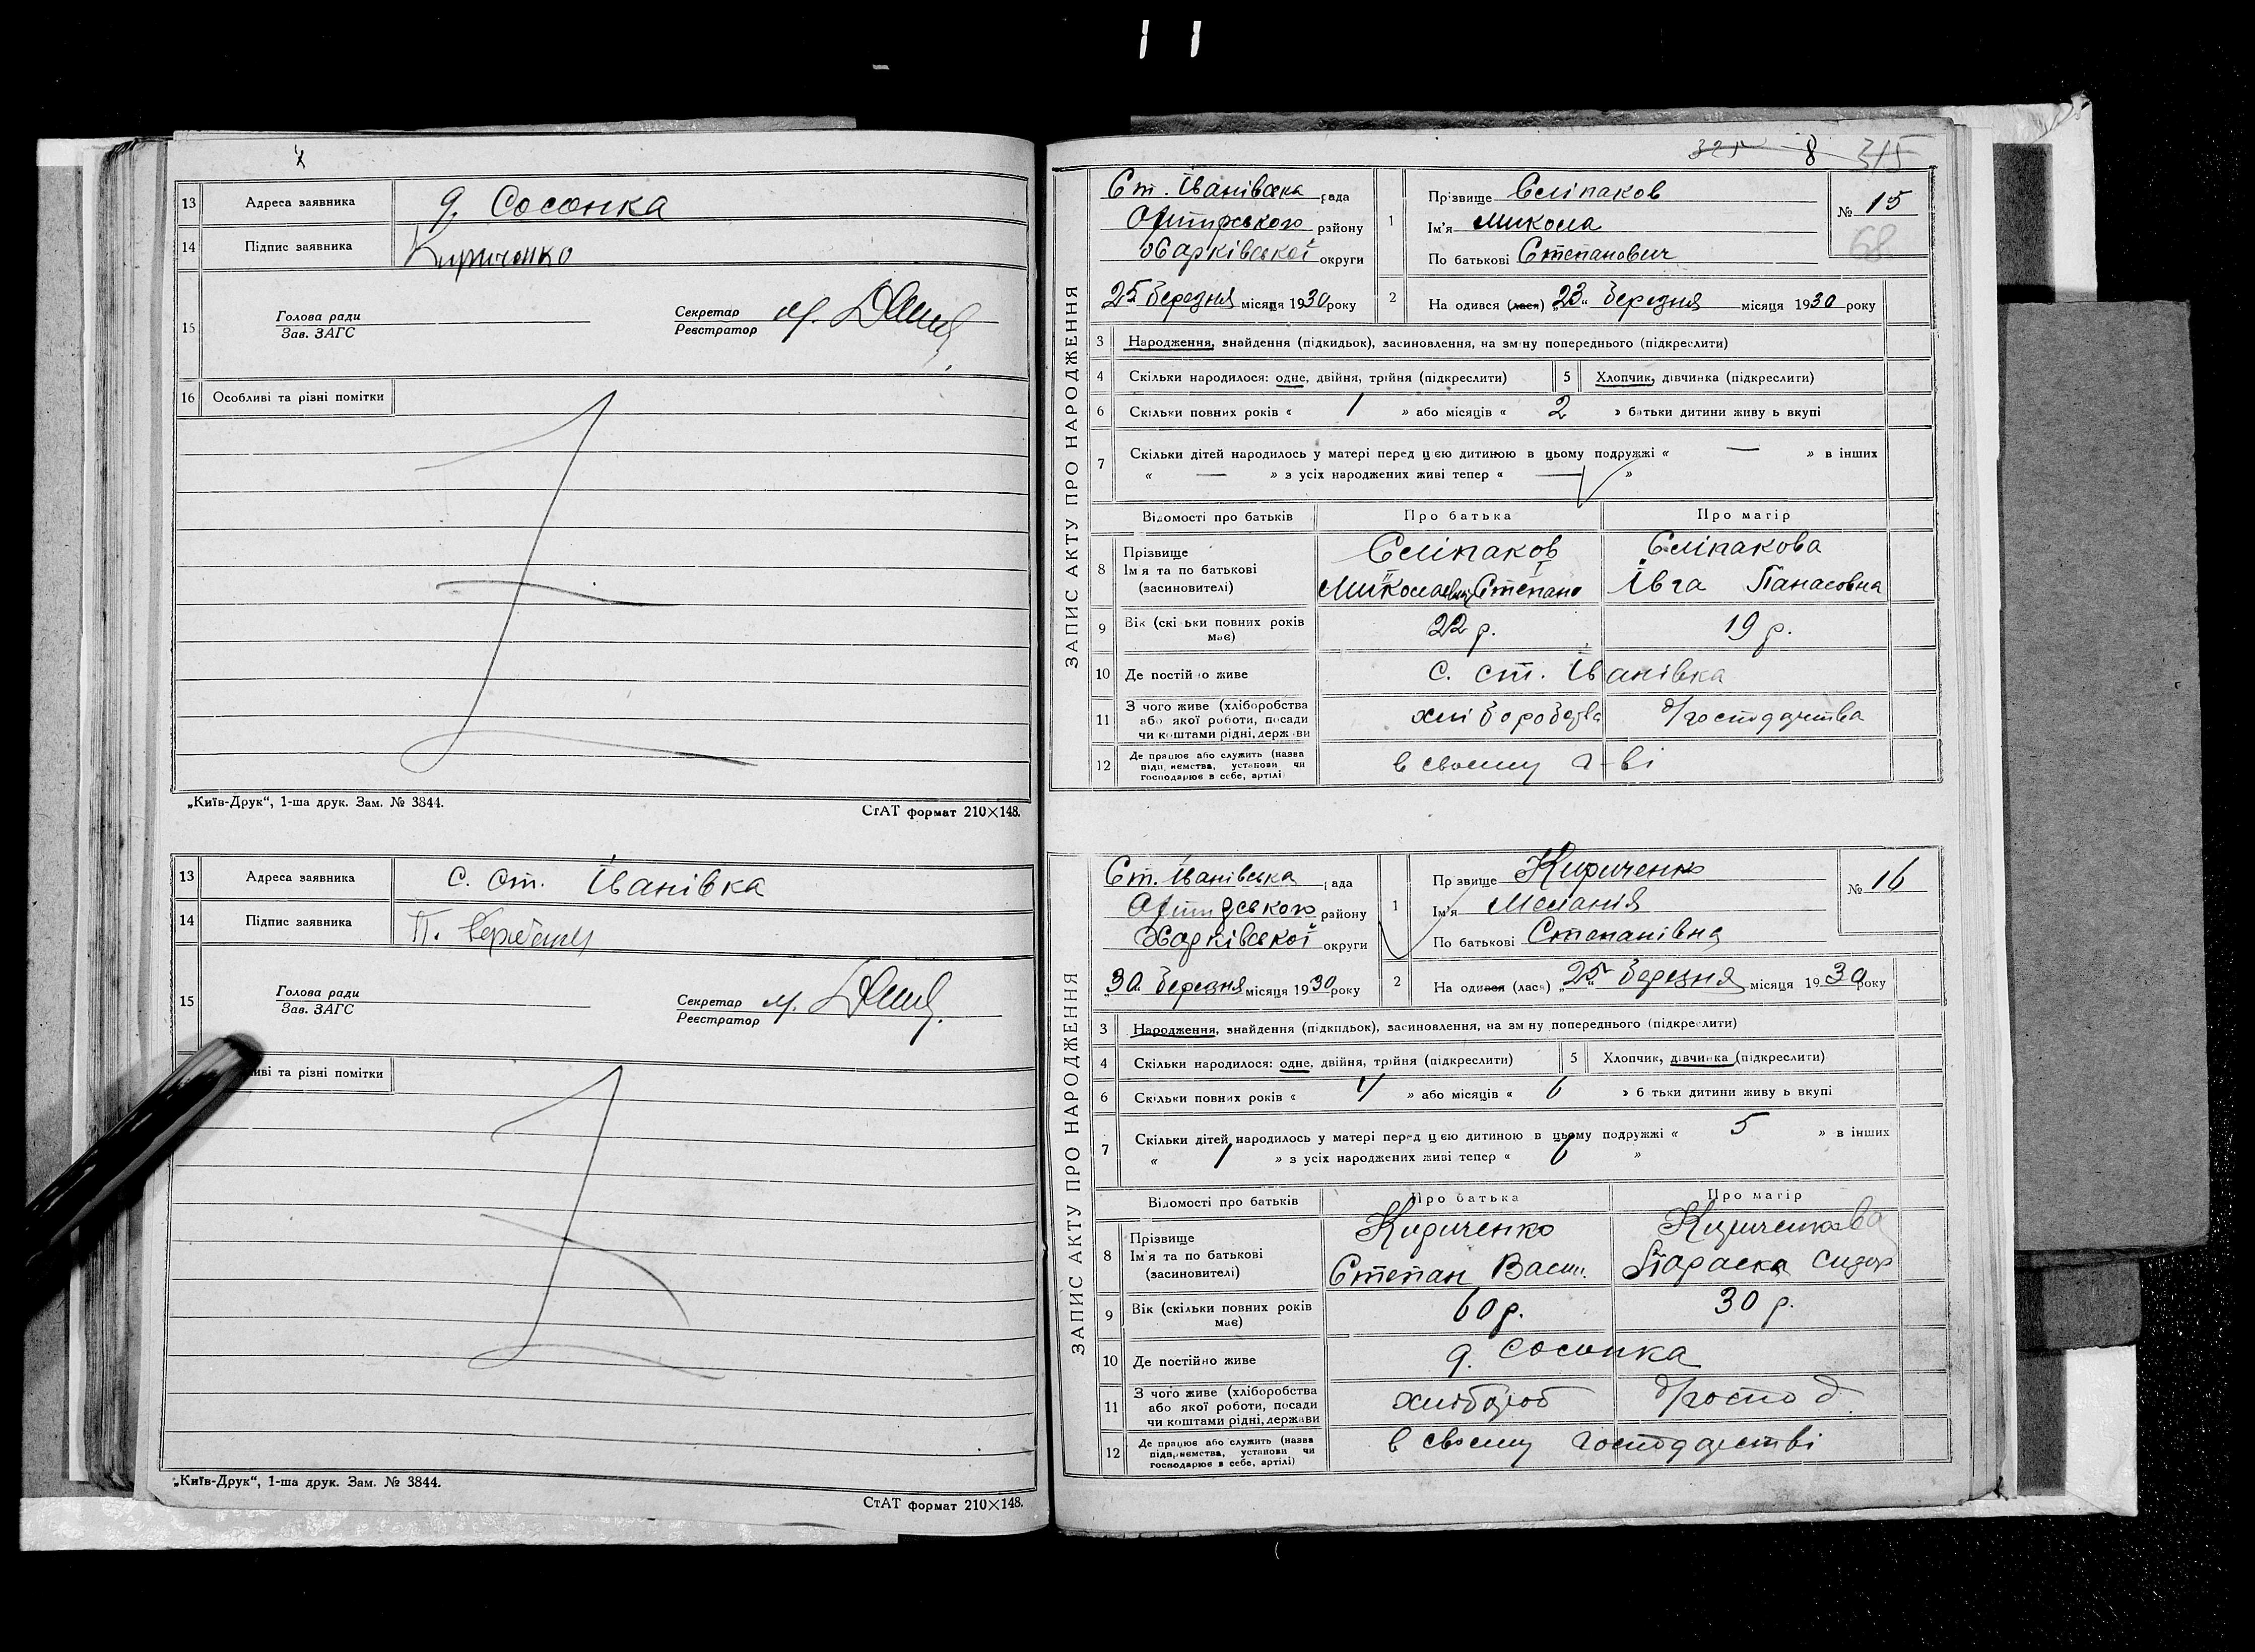 13 Адреса заявника д. Сосонка
14 Підпис заявника Кириченко
15 Голова ради
Зав. ЗАГС
Секретар
Реєстратор
16 Особливі та різні помітки
„Київ-Друк“, 1-ша друк. Зам. № 3844.
СтАТ формат 210×148.
13 Адреса заявника с. Ст. Іванівка
14 Підпис заявника П.
15 Голова ради
Зав. ЗАГС
Секретар
Реєстратор
та різні помітки
„Київ-Друк“, 1-ша друк. Зам. № 3844.
СтАТ формат 210×148.
8 315
ЗАПИС АКТУ ПРО НАРОДЖЕННЯ
Ст. Іванівська рада
району
Харківської округи
25 березня місяця 1930 року
1 Прізвище Єліпаков
Ім'я Микола
По батькові Степанович
№ 15
68
2 На одився (лася) „23“ березня місяця 1930 року
3 Народження, знайдення (підкидьок), засиновлення, на зміну попереднього (підкреслити)
4 Скільки народилося: одне, двійня, трійня (підкреслити) 5 Хлопчик, дівчинка (підкреслити)
6 Скільки повних років « 1 » або місяців « 2 » батьки дитини живуть вкупі
7 Скільки дітей народилось у матері перед цією дитиною в цьому подружжі « — » в інших
« — » з усіх народжених живі тепер « — »
Відомості про батьків Про батька Про матір
8 Прізвище Єліпаков Єліпакова
Ім'я та по батькові Степано Івга Панасовна
(засиновителі)
9 Вік (скільки повних років має) 22 р. 19 р.
10 Де постійно живе с. ст. Іванівка
11 З чого живе (хліборобства
або якої роботи, посади
чи коштами рідні, держави
д/господарства
12 Де працює або служить (назва
підприємства, установи чи
господарює в себе, артілі)
в своєму г-ві
ЗАПИС АКТУ ПРО НАРОДЖЕННЯ
Ст. Іванівська рада
району
Харківської округи
„30 березня місяця 1930 року
1 Прізвище Кириченко
Ім'я Меланія
По батькові Степанівна
№ 16
2 На одився (лася) „25“ березня місяця 1930 року
3 Народження, знайдення (підкидьок), засиновлення, на зміну попереднього (підкреслити)
4 Скільки народилося: одне, двійня, трійня (підкреслити) 5 Хлопчик, дівчинка (підкреслити)
6 Скільки повних років « » або місяців « 6 » батьки дитини живуть вкупі
7 Скільки дітей народилось у матері перед цією дитиною в цьому подружжі « 5 » в інших
« 1 » з усіх народжених живі тепер « 6 »
Відомості про батьків Про батька Про матір
8 Прізвище Кириченко Кириченкова
Ім'я та по батькові Степан Васил. Параска Сидор
(засиновителі)
9 Вік (скільки повних років має) 60 р. 30 р.
10 Де постійно живе д. Сосонка
11 З чого живе (хліборобства
або якої роботи, посади
чи коштами рідні, держави
хлібороб д/господ.
12 Де працює або служить (назва
підприємства, установи чи
господарює в себе, артілі)
в своєму господарстві